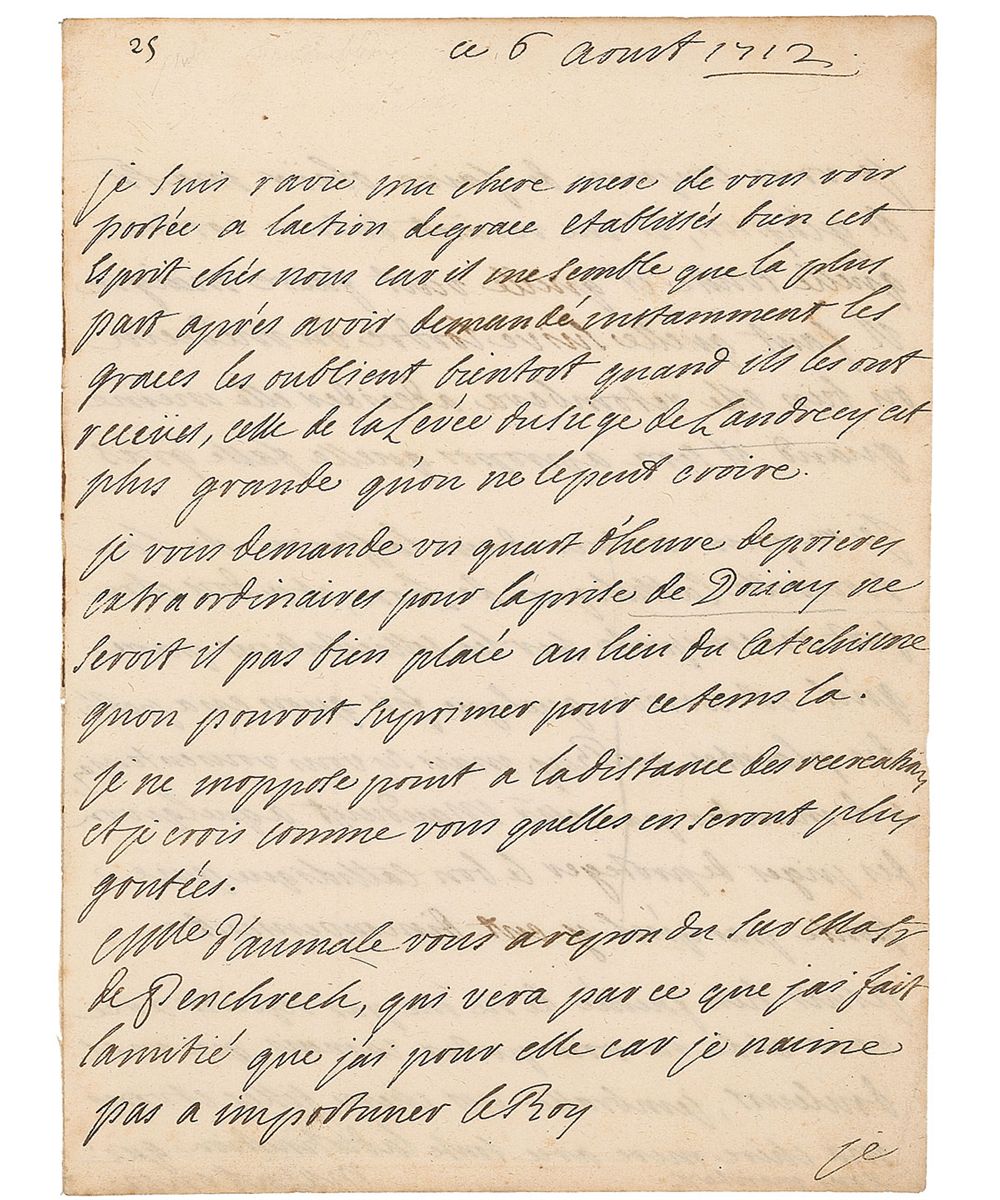 25
ce 6 aoust 1712
je suis ravie ma chere mere de vous voir
portée a laction degrace etablissés bien cet
esprit chés nous car il me semble que la plus
part aprés avoir demandé instamment les
graces les oublient bientost quand ils les ont
receües, celle de la Levée du siege de Landrecy est
plus grande qu'on ne le peut croire.
je vous demande un quart d'heure de prieres
extraordinaires pour la prise de Doüay ne
seroit il pas bien placé au lieu du Catechisme
quon pouroit suprimer pour ce tems la.
je ne m'oppose point a la distance des recreations
et je crois comme vous quelles en seront plus
goutées.
Mlle d'aumale vous a repondu sur
de Penchrech, qui vera par ce que jai fait
lamitié que j'ai pour elle car je naime
pas a importuner le Roy
je